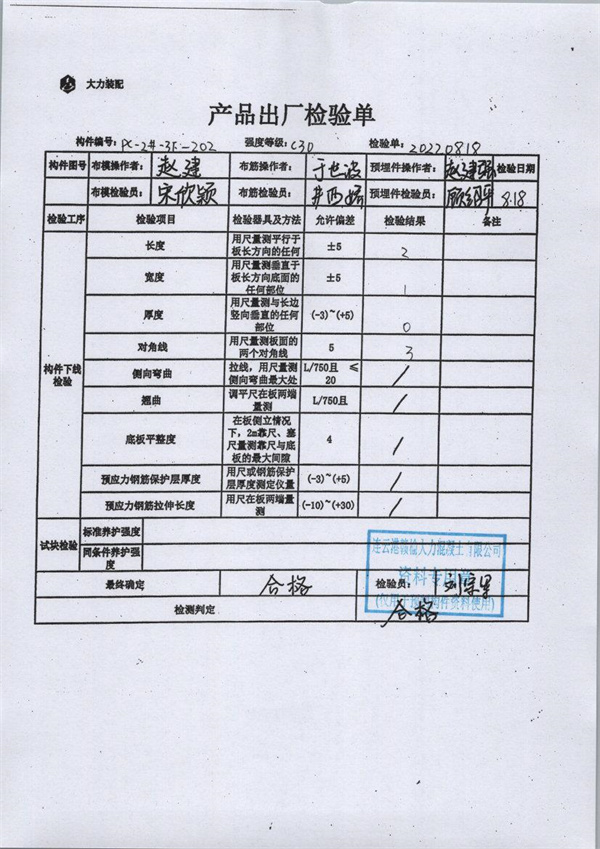 大力装配
产品出厂检验单
构件编号: PC-2#-3F-202 强度等级: C30 检验单: 20220818
构件图号 布模操作者: 赵建 布筋操作者: 于世波 预埋件操作者: 赵建强 检验日期
布模检验员: 宋欣颖 布筋检验员: 预埋件检验员: 8.18
检验工序 检验项目 检验器具及方法 允许偏差 检验结果 备注
构件下线检验
长度 用尺量测平行于板长方向的任何 ±5 2
宽度 用尺量测垂直于板长方向底面的任何部位 ±5 1
厚度 用尺量测与长边竖向垂直的任何部位 (-3)~(+5) 0
对角线 用尺量测板面的两个对角线 5 3
侧向弯曲 拉线，用尺量测侧向弯曲最大处 L/750且 ≤20 /
翘曲 调平尺在板两端量测 L/750且 /
底板平整度 在板侧立情况下，2m靠尺、塞尺量测靠尺与底板的最大间隙 4 /
预应力钢筋保护层厚度 用尺或钢筋保护层厚度测定仪量 (-3)~(+5) /
预应力钢筋拉伸长度 用尺在板两端量测 (-10)~(+30) /
试块检验 标准养护强度
同条件养护强度
最终确定 合格 检验员:
检测判定 合格
资料专用章